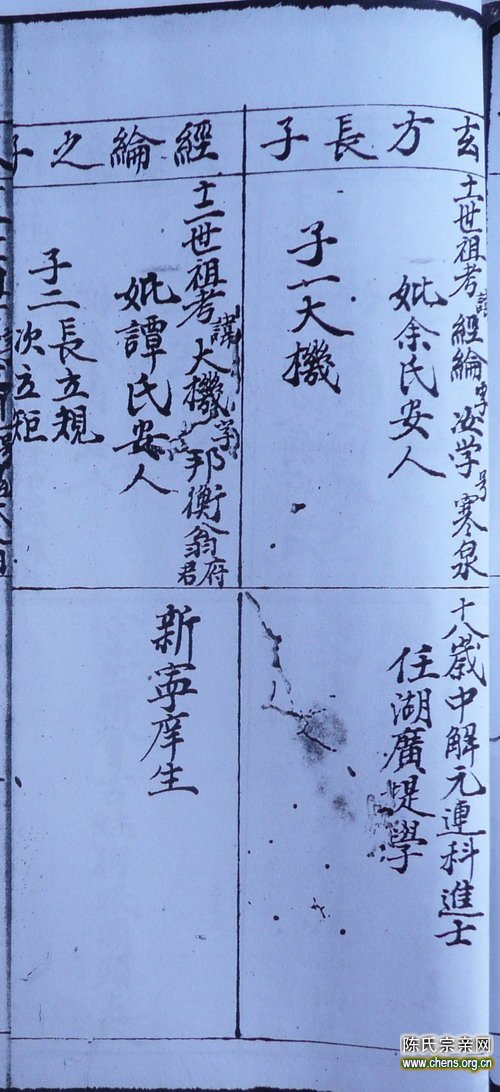 玄方長子
十一世祖考諱經綸字汝学号寒泉
妣余氏安人
子一大機
十八歲中解元連科進士
任湖廣提學
經綸之子
十二世祖考諱大機字邦衡翁府君
妣譚氏安人
子二長立規
次立矩
新寧庠生
陈氏宗亲网
www.chens.org.cn